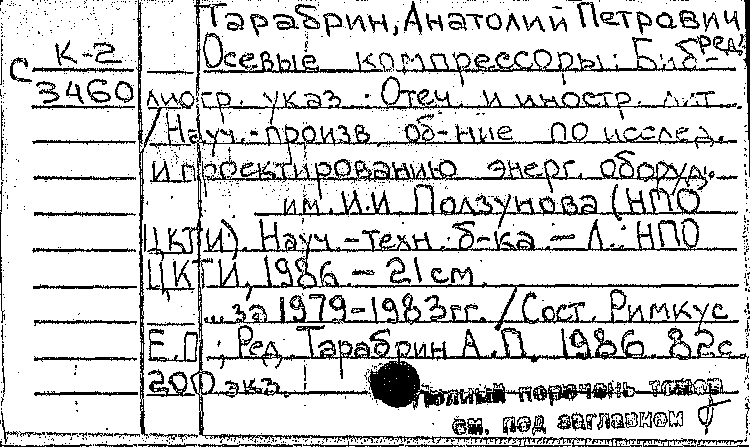 Тарабрин, Анатолий Петрович
ред.
К-2
С
3460
Осевые компрессоры: Биб-
лиогр. указ. Отеч. и иностр. лит.
/Науч.-произв. об-ние по исслед.
и проектированию энерг. оборуд.
им. И.И. Ползунова (НПО
ЦКТИ). Науч.-техн. б-ка. — Л.: НПО
ЦКТИ, 1986. — 21 см.
... за 1979-1983 гг. / Сост. Римкус
Е.П.; Ред. Тарабрин А.П. 1986. 82 с.
200 экз.
Полный перечень томов
см. под заглавием